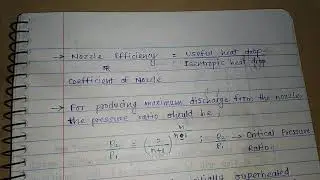 → Nozzle Efficiency = Useful heat drop
OR Isentropic heat drop
Coefficient of Nozzle
→ For producing maximum discharge from the nozzle
the pressure ratio should be
P2/P1 = (2/(n+1))^(n/(n-1)) ; P2/P1 → Critical Pressure
Ratio
superheated